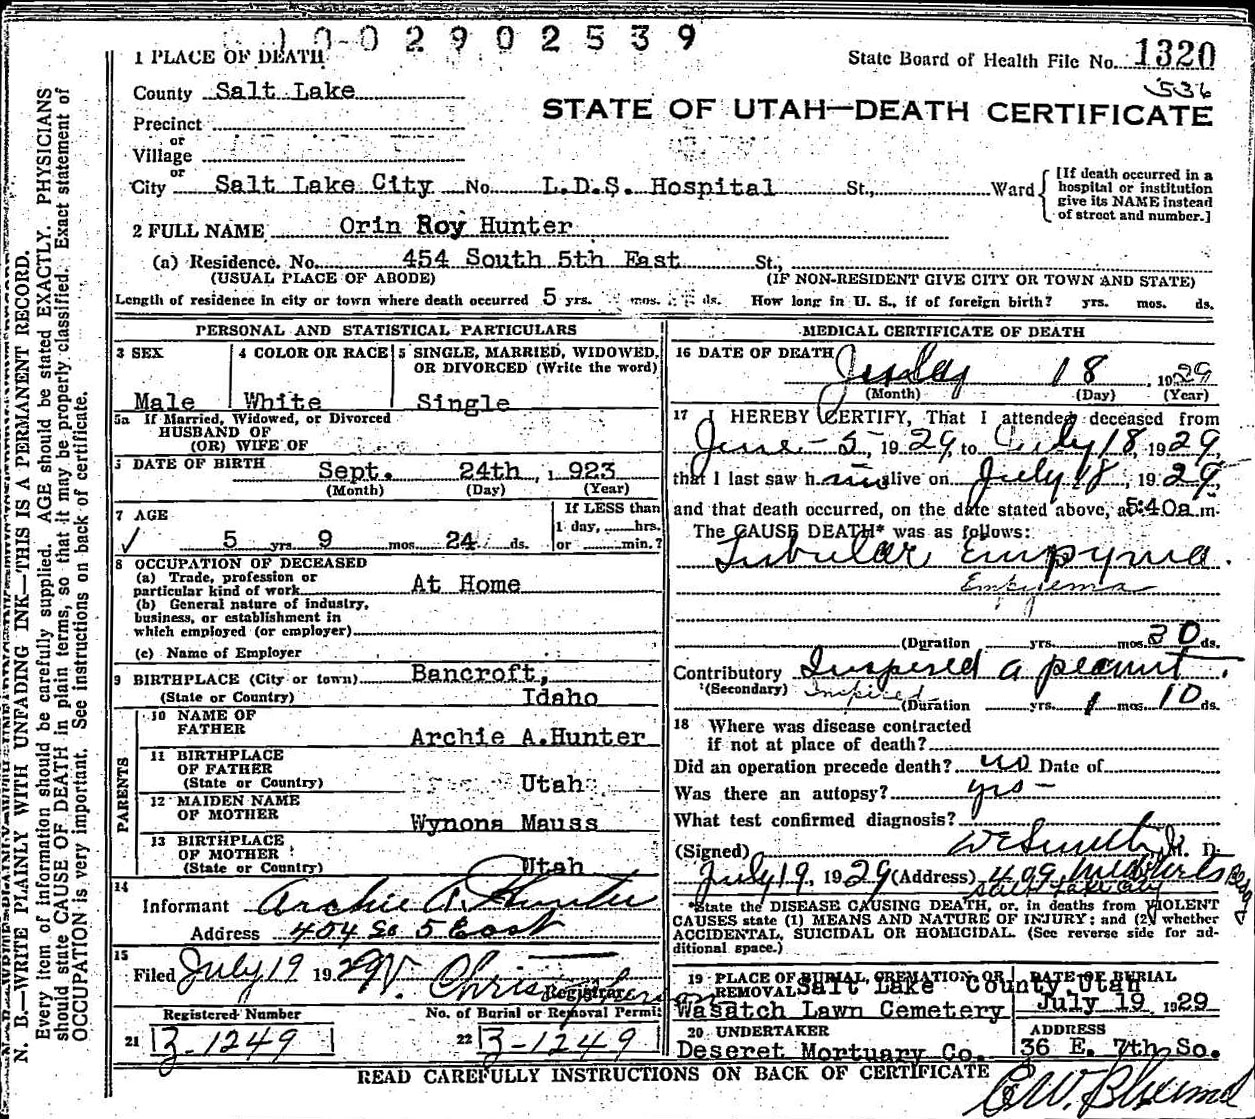 10-02902539
1 PLACE OF DEATH
State Board of Health File No. 1320
536
County Salt Lake
STATE OF UTAH—DEATH CERTIFICATE
Precinct
or
Village
or
City Salt Lake City No. L.D.S. Hospital St., Ward
[If death occurred in a hospital or institution give its NAME instead of street and number.]
2 FULL NAME Orin Roy Hunter
(a) Residence. No. 454 South 5th East St.,
(USUAL PLACE OF ABODE) (IF NON-RESIDENT GIVE CITY OR TOWN AND STATE)
Length of residence in city or town where death occurred 5 yrs. mos. ds. How long in U. S., if of foreign birth? yrs. mos. ds.
N. B.—WRITE PLAINLY WITH UNFADING INK—THIS IS A PERMANENT RECORD.
Every item of information should be carefully supplied. AGE should be stated EXACTLY. PHYSICIANS
should state CAUSE OF DEATH in plain terms, so that it may be properly classified. Exact statement of
OCCUPATION is very important. See instructions on back of certificate.
PERSONAL AND STATISTICAL PARTICULARS
3 SEX
Male
4 COLOR OR RACE
White
5 SINGLE, MARRIED, WIDOWED,
OR DIVORCED (Write the word)
Single
5a If Married, Widowed, or Divorced
HUSBAND OF
(OR) WIFE OF
DATE OF BIRTH
Sept. 24th, 1923
(Month) (Day) (Year)
7 AGE
5 yrs. 9 mos. 24 ds.
If LESS than
1 day, hrs.
or min.?
8 OCCUPATION OF DECEASED
(a) Trade, profession or
particular kind of work At Home
(b) General nature of industry,
business, or establishment in
which employed (or employer)
(c) Name of Employer
9 BIRTHPLACE (City or town) Bancroft,
(State or Country) Idaho
PARENTS
10 NAME OF
FATHER
Archie A.Hunter
11 BIRTHPLACE
OF FATHER
(State or Country) Utah
12 MAIDEN NAME
OF MOTHER
Wynona Mauss
13 BIRTHPLACE
OF MOTHER
(State or Country) Utah
14
Informant Archie A. Hunter
Address 454 So 5 East
15
Filed July 19 1929
Registrar
Registered Number
21 3-1249
No. of Burial or Removal Permit
22 3-1249
MEDICAL CERTIFICATE OF DEATH
16 DATE OF DEATH
July 18, 1929
(Month) (Day) (Year)
17 I HEREBY CERTIFY, That I attended deceased from
June 5, 1929, to July 18, 1929,
that I last saw him alive on July 18, 1929,
and that death occurred, on the date stated above, at 5:40a m.
The CAUSE DEATH* was as follows:
Tubular Empyma.
Empyema
(Duration yrs. mos. 30 ds.
Contributory Inspired a peanut.
(Secondary) Inspired
(Duration yrs. 1 mos. 10 ds.
18 Where was disease contracted
if not at place of death?
Did an operation precede death? no Date of
Was there an autopsy? yes-
What test confirmed diagnosis?
(Signed) W E Smith, M. D.
July 19, 1929 (Address) 409 Bldg
Salt Lake City
*State the DISEASE CAUSING DEATH, or, in deaths from VIOLENT
CAUSES state (1) MEANS AND NATURE OF INJURY; and (2) whether
ACCIDENTAL, SUICIDAL OR HOMICIDAL. (See reverse side for ad-
ditional space.)
19 PLACE OF BURIAL, CREMATION OR
REMOVAL Salt Lake County, Utah
Wasatch Lawn Cemetery
DATE OF BURIAL
July 19, 1929
20 UNDERTAKER
Deseret Mortuary Co.
ADDRESS
36 E. 7th So.
READ CAREFULLY INSTRUCTIONS ON BACK OF CERTIFICATE